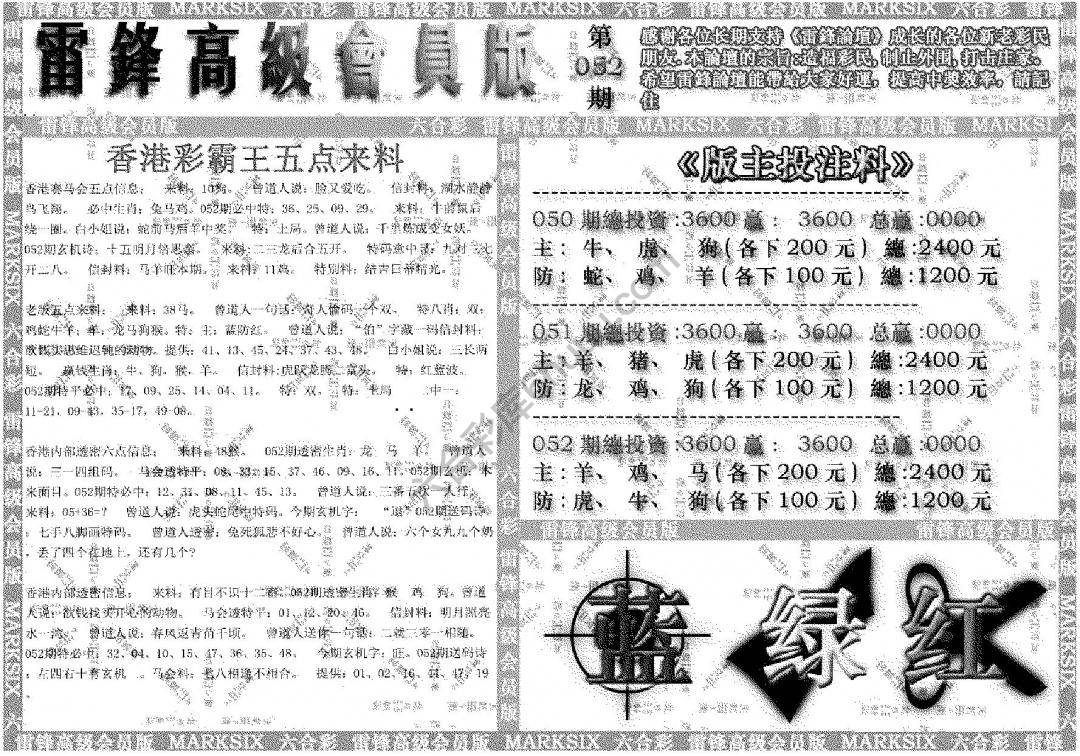 雷鋒高級會員版
第
052
期
感谢各位长期支持《雷鋒論壇》成长的各位新老彩民
朋友.本論壇的宗旨:造福彩民,制止外围,打击庄家、
希望雷鋒論壇能帶給大家好運,提高中獎效率,請記
住
雷锋高级会员版 六合彩 雷锋高级会员版 MARKSIX 六合彩 雷锋高级会员版 MARKSI
香港彩霸王五点来料
香港赛马会五点信息: 来料:10狗。 曾道人说:脸又爱吃。 信封料:湖水静静
鸟飞翔。 必中生肖:兔马鸡。052期必中特:36、25、09、29。 来料:牛前鼠后
绕一圈。白小姐说:蛇前马后羊中奖。 特:上局。曾道人说:千里炼成变女妖。
052期玄机诗:十五明月倍思亲。 来料:二三龙后合五开。
开二八。 信封料:马羊旺本期。 来料:11鸡。 特别料:
老版五点来料: 来料:38马。 曾道人一句话:奇人偷码一个双、 特八肖:双:
鸡蛇牛羊;单:龙马狗猴。特:主:蓝防红。 曾道人说:“伯”字藏一码信封料:
欲钱买思维迟钝的动物。提供:41、13、45、24、37、43、48。 白小姐说:三长两
短。 赢钱生肖:牛、狗、猴、羊。 信封料:虎跃龙腾二富头。 特:红蓝波。
052期特平必中:17、09、25、14、04、11。 特:双, 特:上局 三中一:
11-21、09-43、35-17、49-08。
香港内部透密六点信息: 来料:48猴。 052期透密生肖:龙 马 羊。 曾道人
说:三一四组码。 马会透特平:08、33、15、37、46、09、16、11。052期玄机:本
来面目。052期特必中:12、31、08、11、45、13。 曾道人说:三番五次一人行。
来料:05+36=? 曾道人说:虎头蛇尾中特码。今期玄机字: “退” 052期送码诗
:七手八脚画特码。 曾道人透密:兔死狐悲不好心。 曾道人说:六个女九九个奶
,丢了四个在地上,还有几个?
香港内部透密信息: 来料:有目不识十二着。052期透密生肖:猴 鸡 狗。曾道
人说:欲钱找买开心的动物。 马会透特平:01、12、20、46。 信封料:明月照亮
水一湾。 曾道人说:春风返青苗千顷。 曾道人送你一句话:二就三零一相随。
052期特必中:32、04、10、15、47、36、35、48。 今期玄机字:旺。052期送码诗
:左四右十有玄机 。马会料:七八相逢不相合。 提供:01、02、16、44、47、19
。
《版主投注料》
050期總投資:3600赢: 3600 总赢:0000
主:牛、 虎、 狗(各下200元)總:2400元
防:蛇、鸡、 羊(各下100元)總:1200元
051期總投資:3600赢: 3600 总赢:0000
主:羊、 猪、 虎(各下200元)總:2400元
防:龙、鸡、 狗(各下100元)總:1200元
052期總投資:3600赢: 3600 总赢:0000
主:羊、鸡、 马(各下200元)總:2400元
防:虎、牛、 狗(各下100元)總:1200元
雷锋高级会员版 雷锋高级会员版
蓝 绿 红
雷锋高级会员版 MARKSIX 六合彩 雷锋高级会员版 MARKSIX 六合彩 雷锋高级会员版 MARKSIX 六合彩